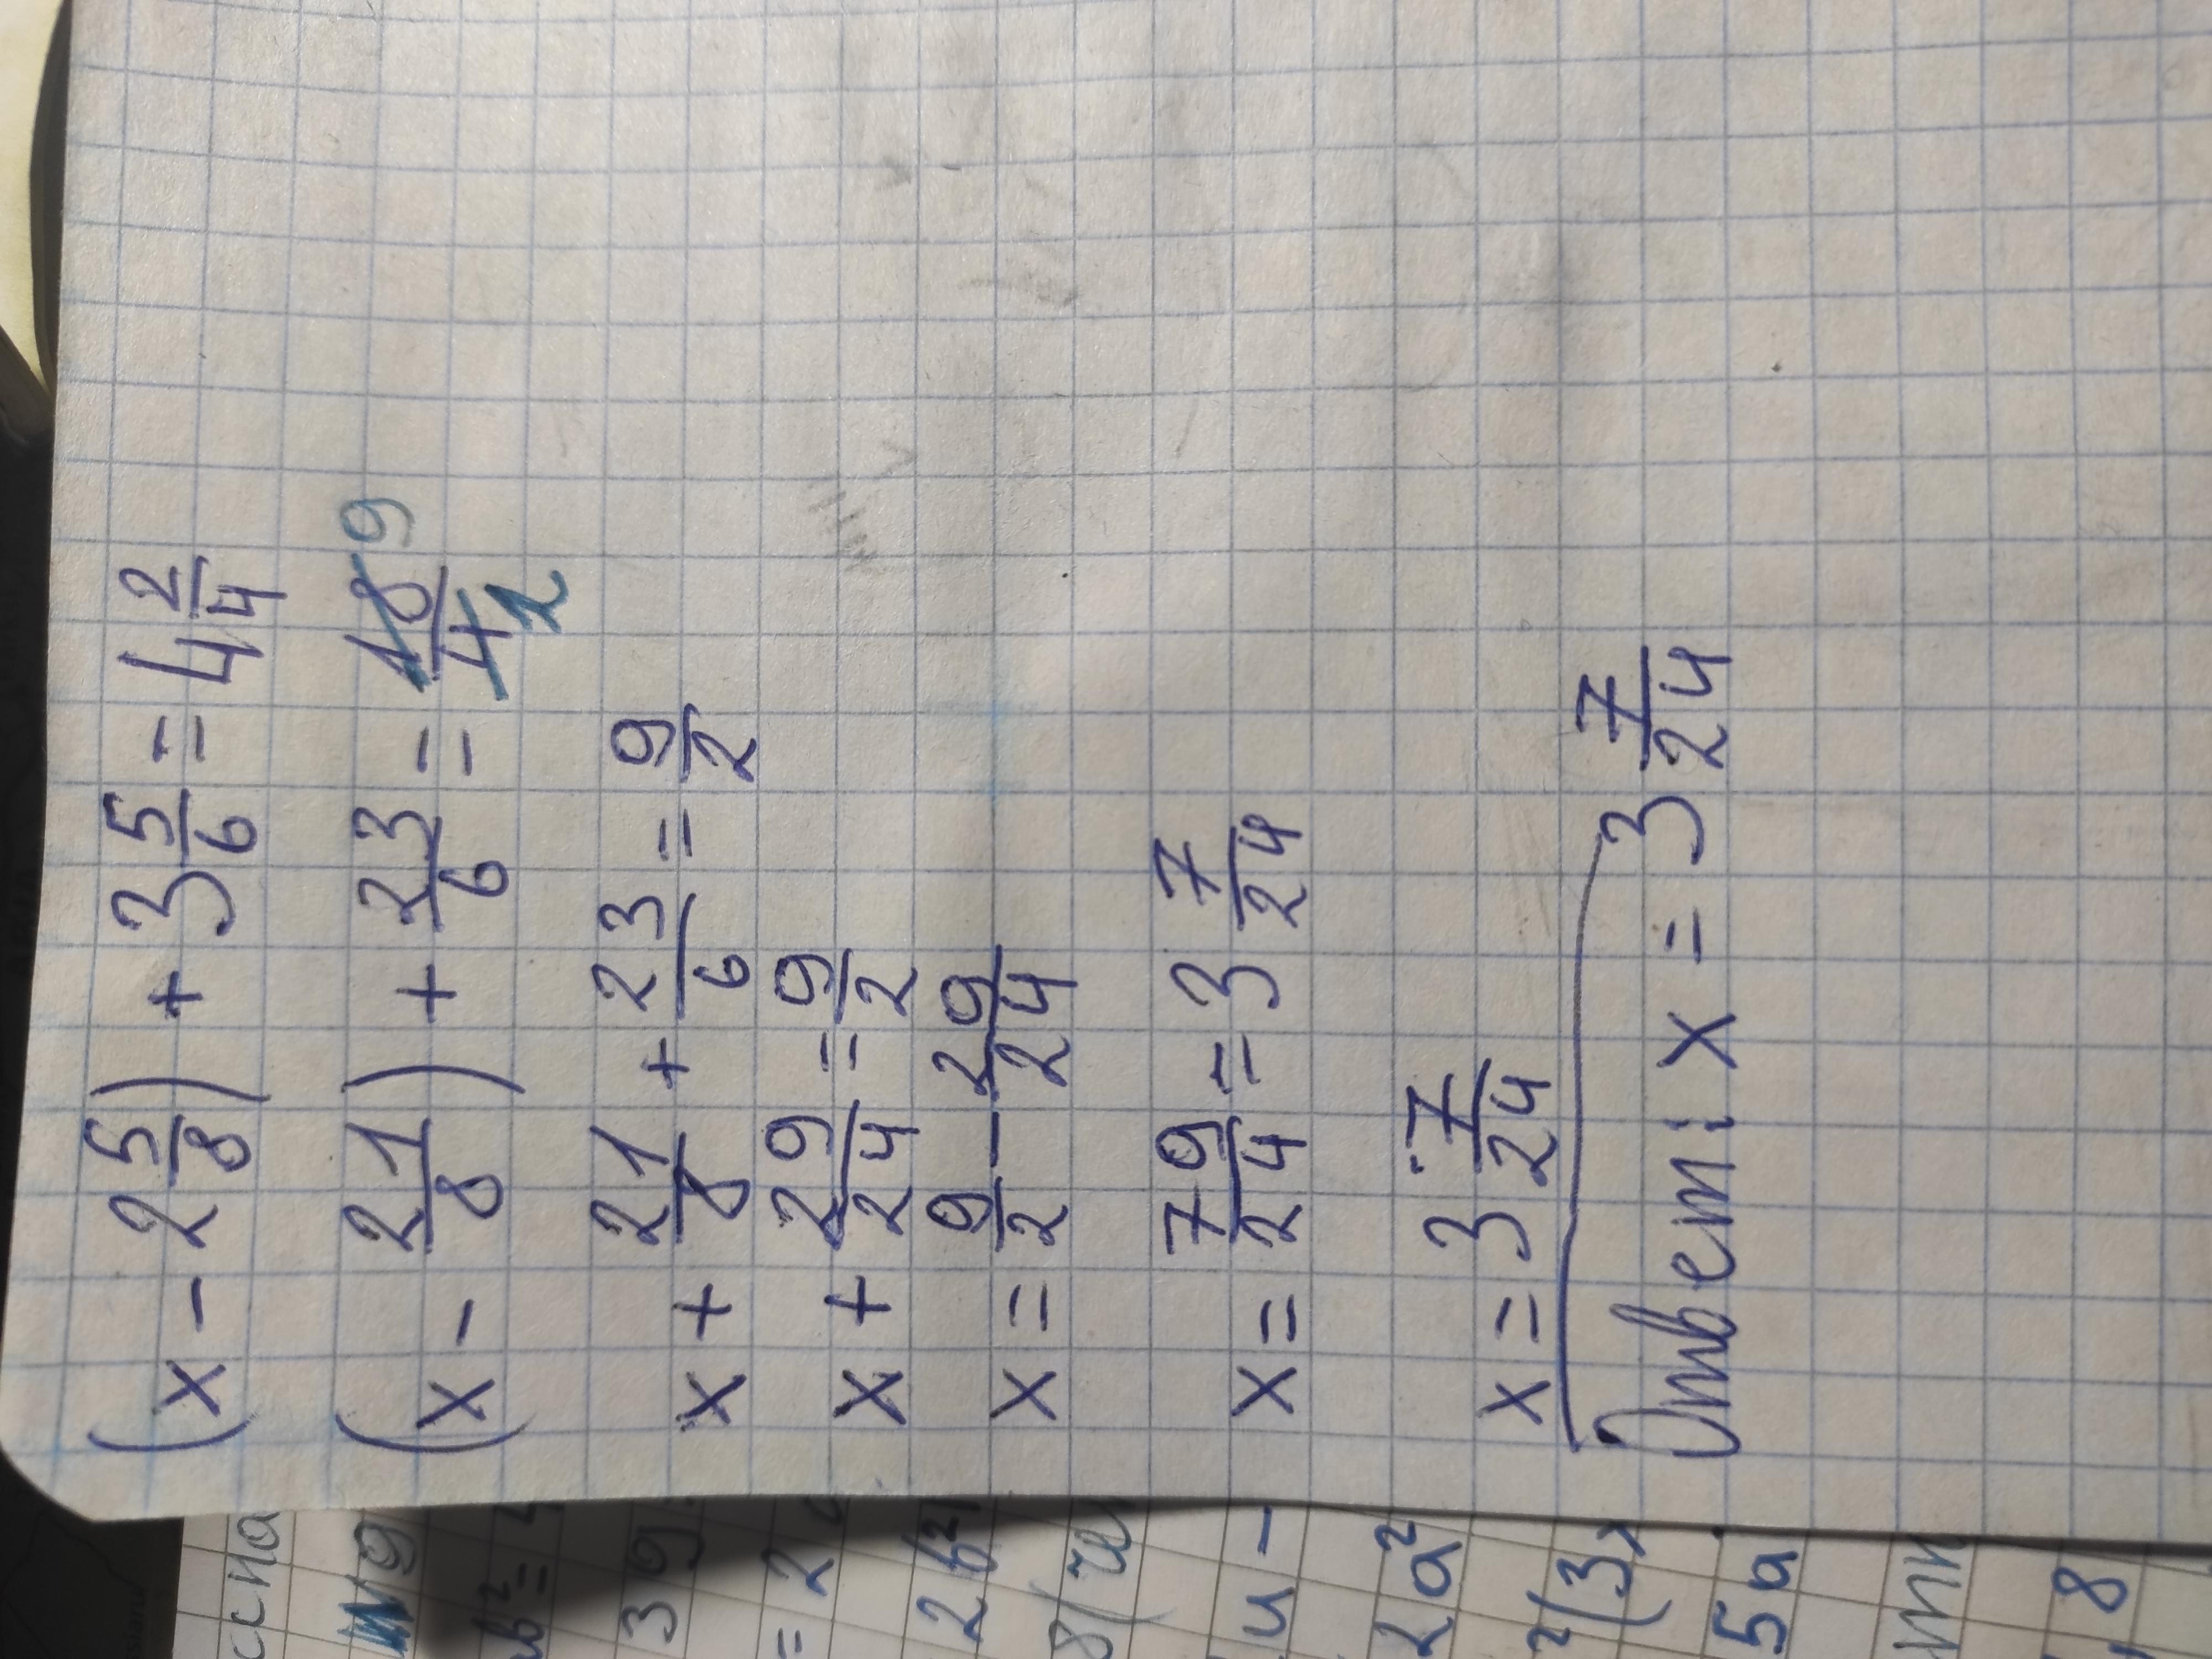 (x - 2 5/8) + 3 5/6 = 4 2/4
(x - 21/8) + 23/6 = 18/4 9 2
x + 21/8 + 23/6 = 9/2
x + 29/24 = 9/2
x = 9/2 - 29/24
x = 79/24 = 3 7/24
x = 3 7/24
Ответ: x = 3 7/24
39
= 2
2b²
8(
u -
2a²
²(3x
5a
8